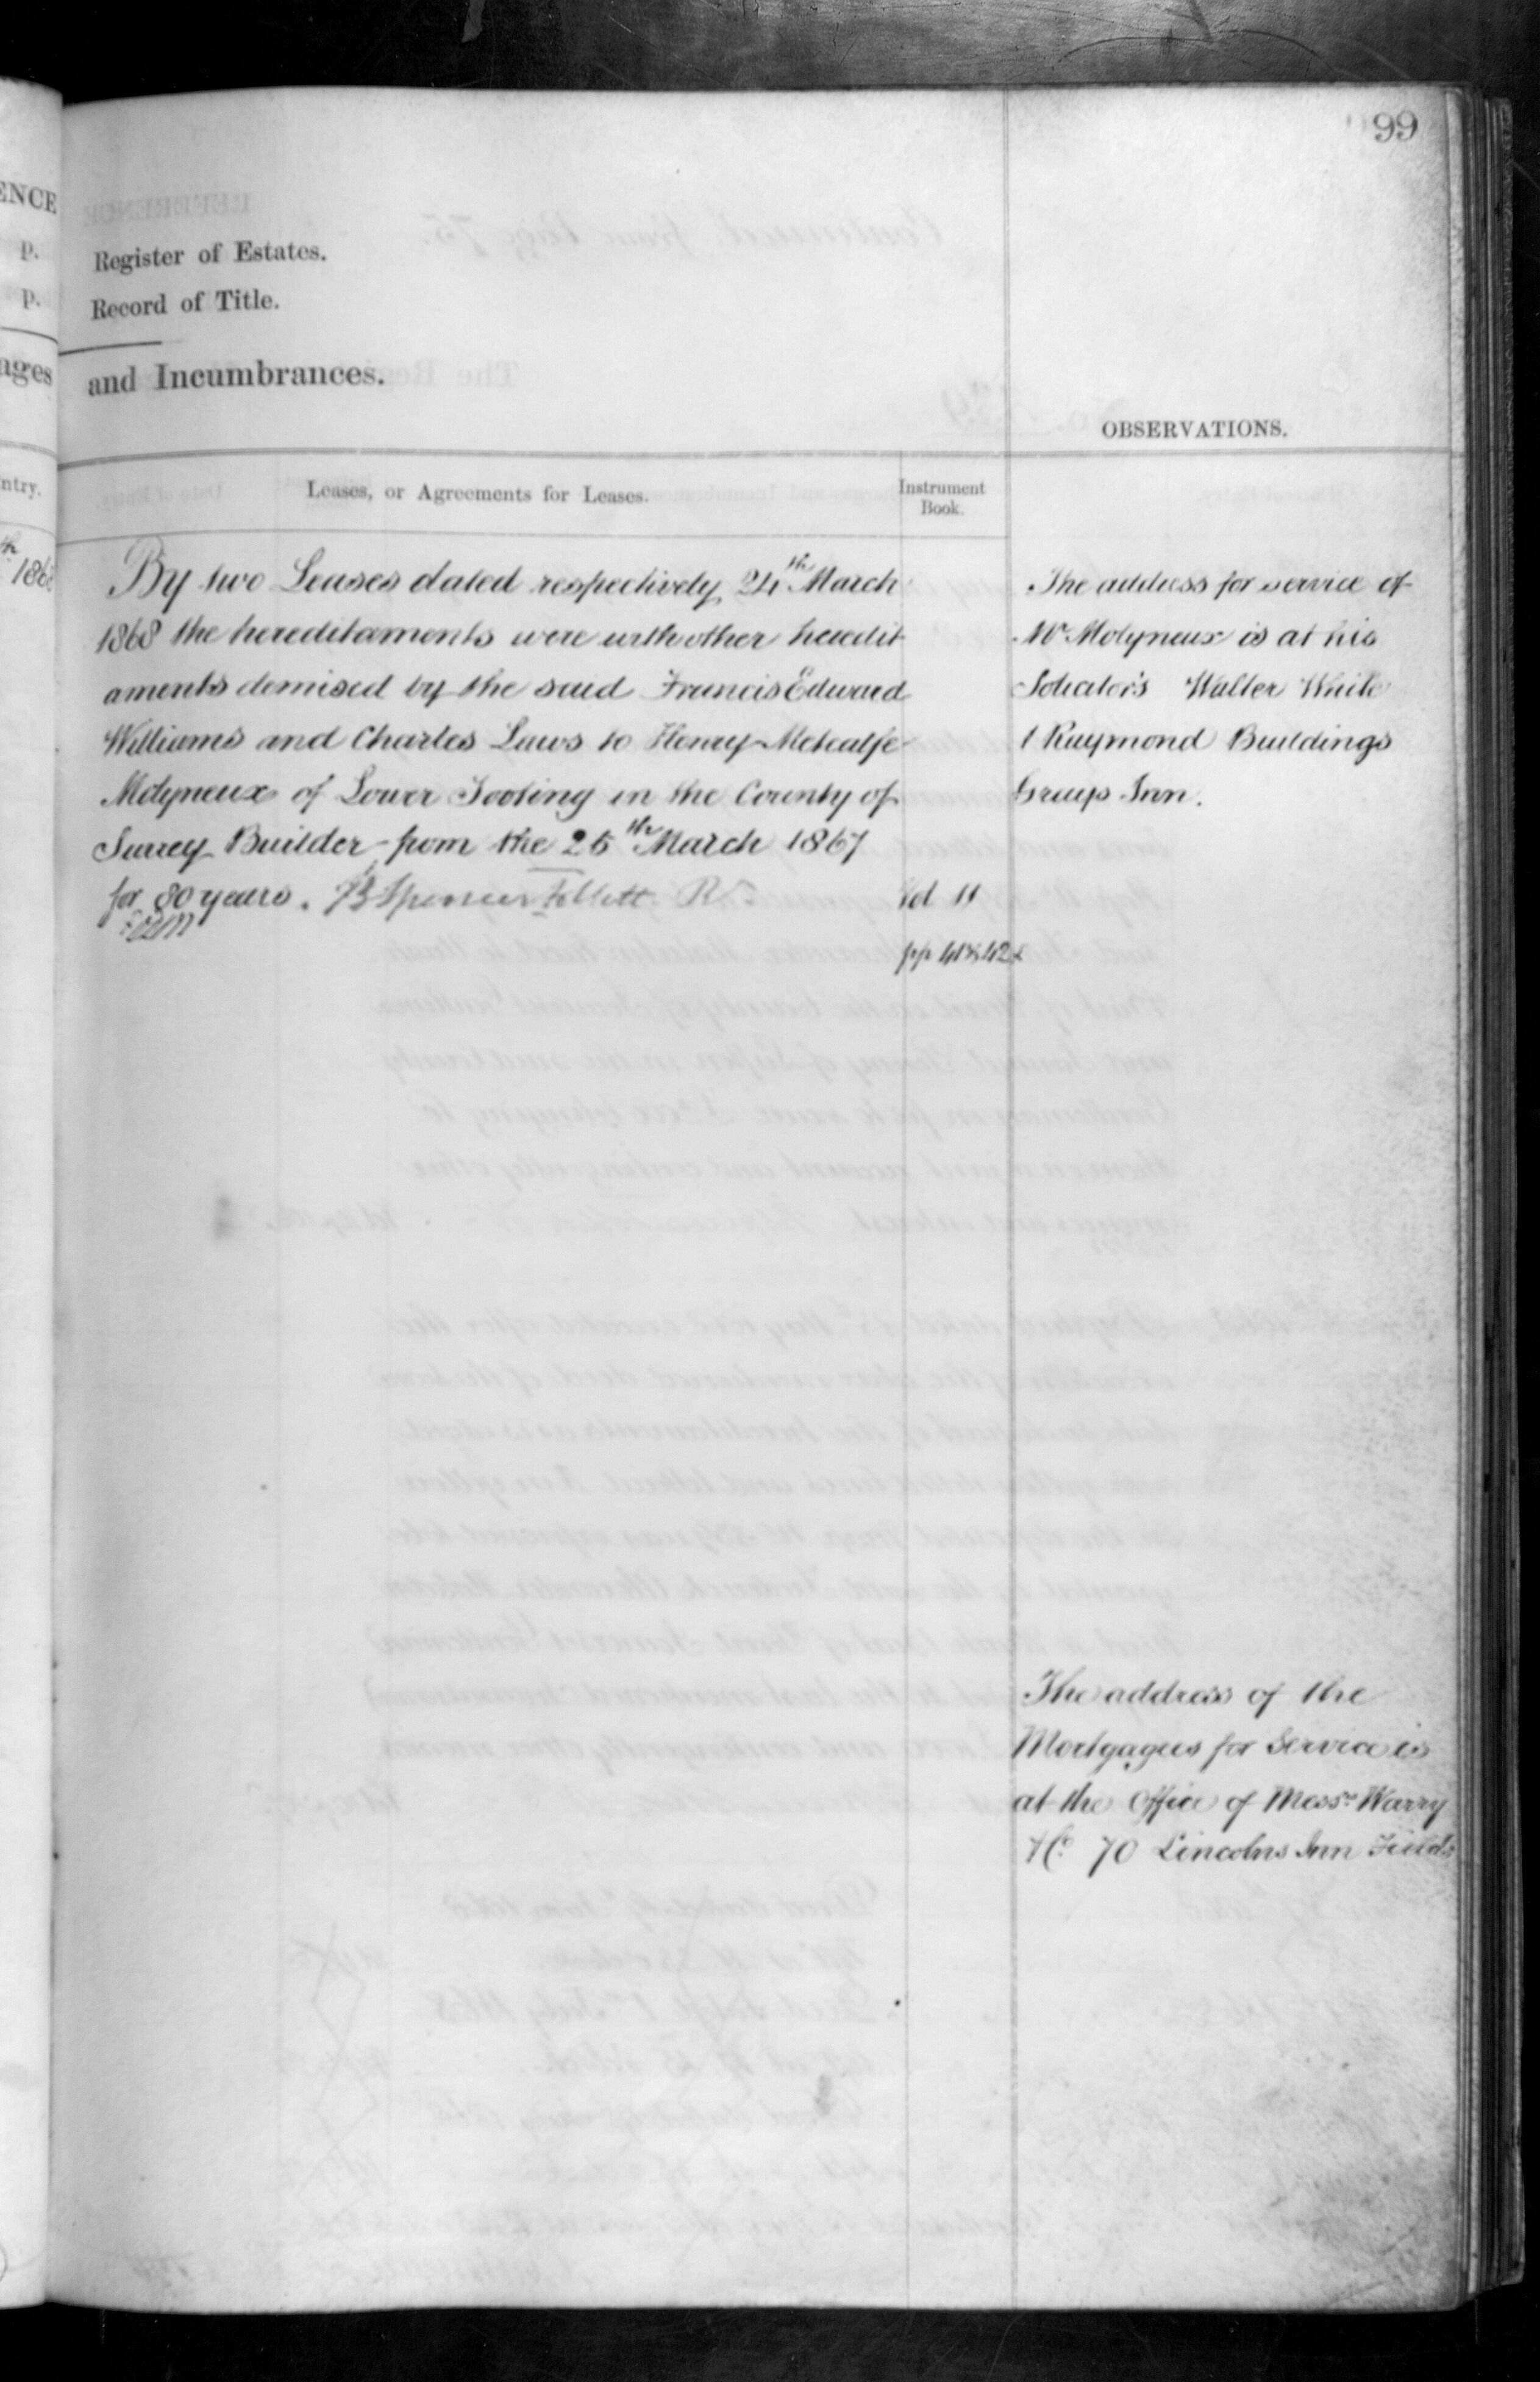 99
ENCE
p.
p.
ages
ntry.
Register of Estates.
Record of Title.
and Incumbrances.
OBSERVATIONS.
Leases, or Agreements for Leases.
Instrument
Book.
By two Leases dated respectively 24th March
1868 the hereditaments were with other heredit
aments demised by the said Francis Edward
Williams and Charles Laws to Henry Metcalfe
Molyneux of Lower Tooting in the County of
Surrey Builder from the 25th March 1867
for 80 years. B Spencer Follett R
Vol 11
pp 41 & 42
The address for service of
Mr Molyneux is at his
Solicators Walter White
1 Raymond Buildings
Grays Inn.
The address of the
Mortgagees for Service is
at the Office of Messrs Warry
& Co 70 Lincolns Inn Fields